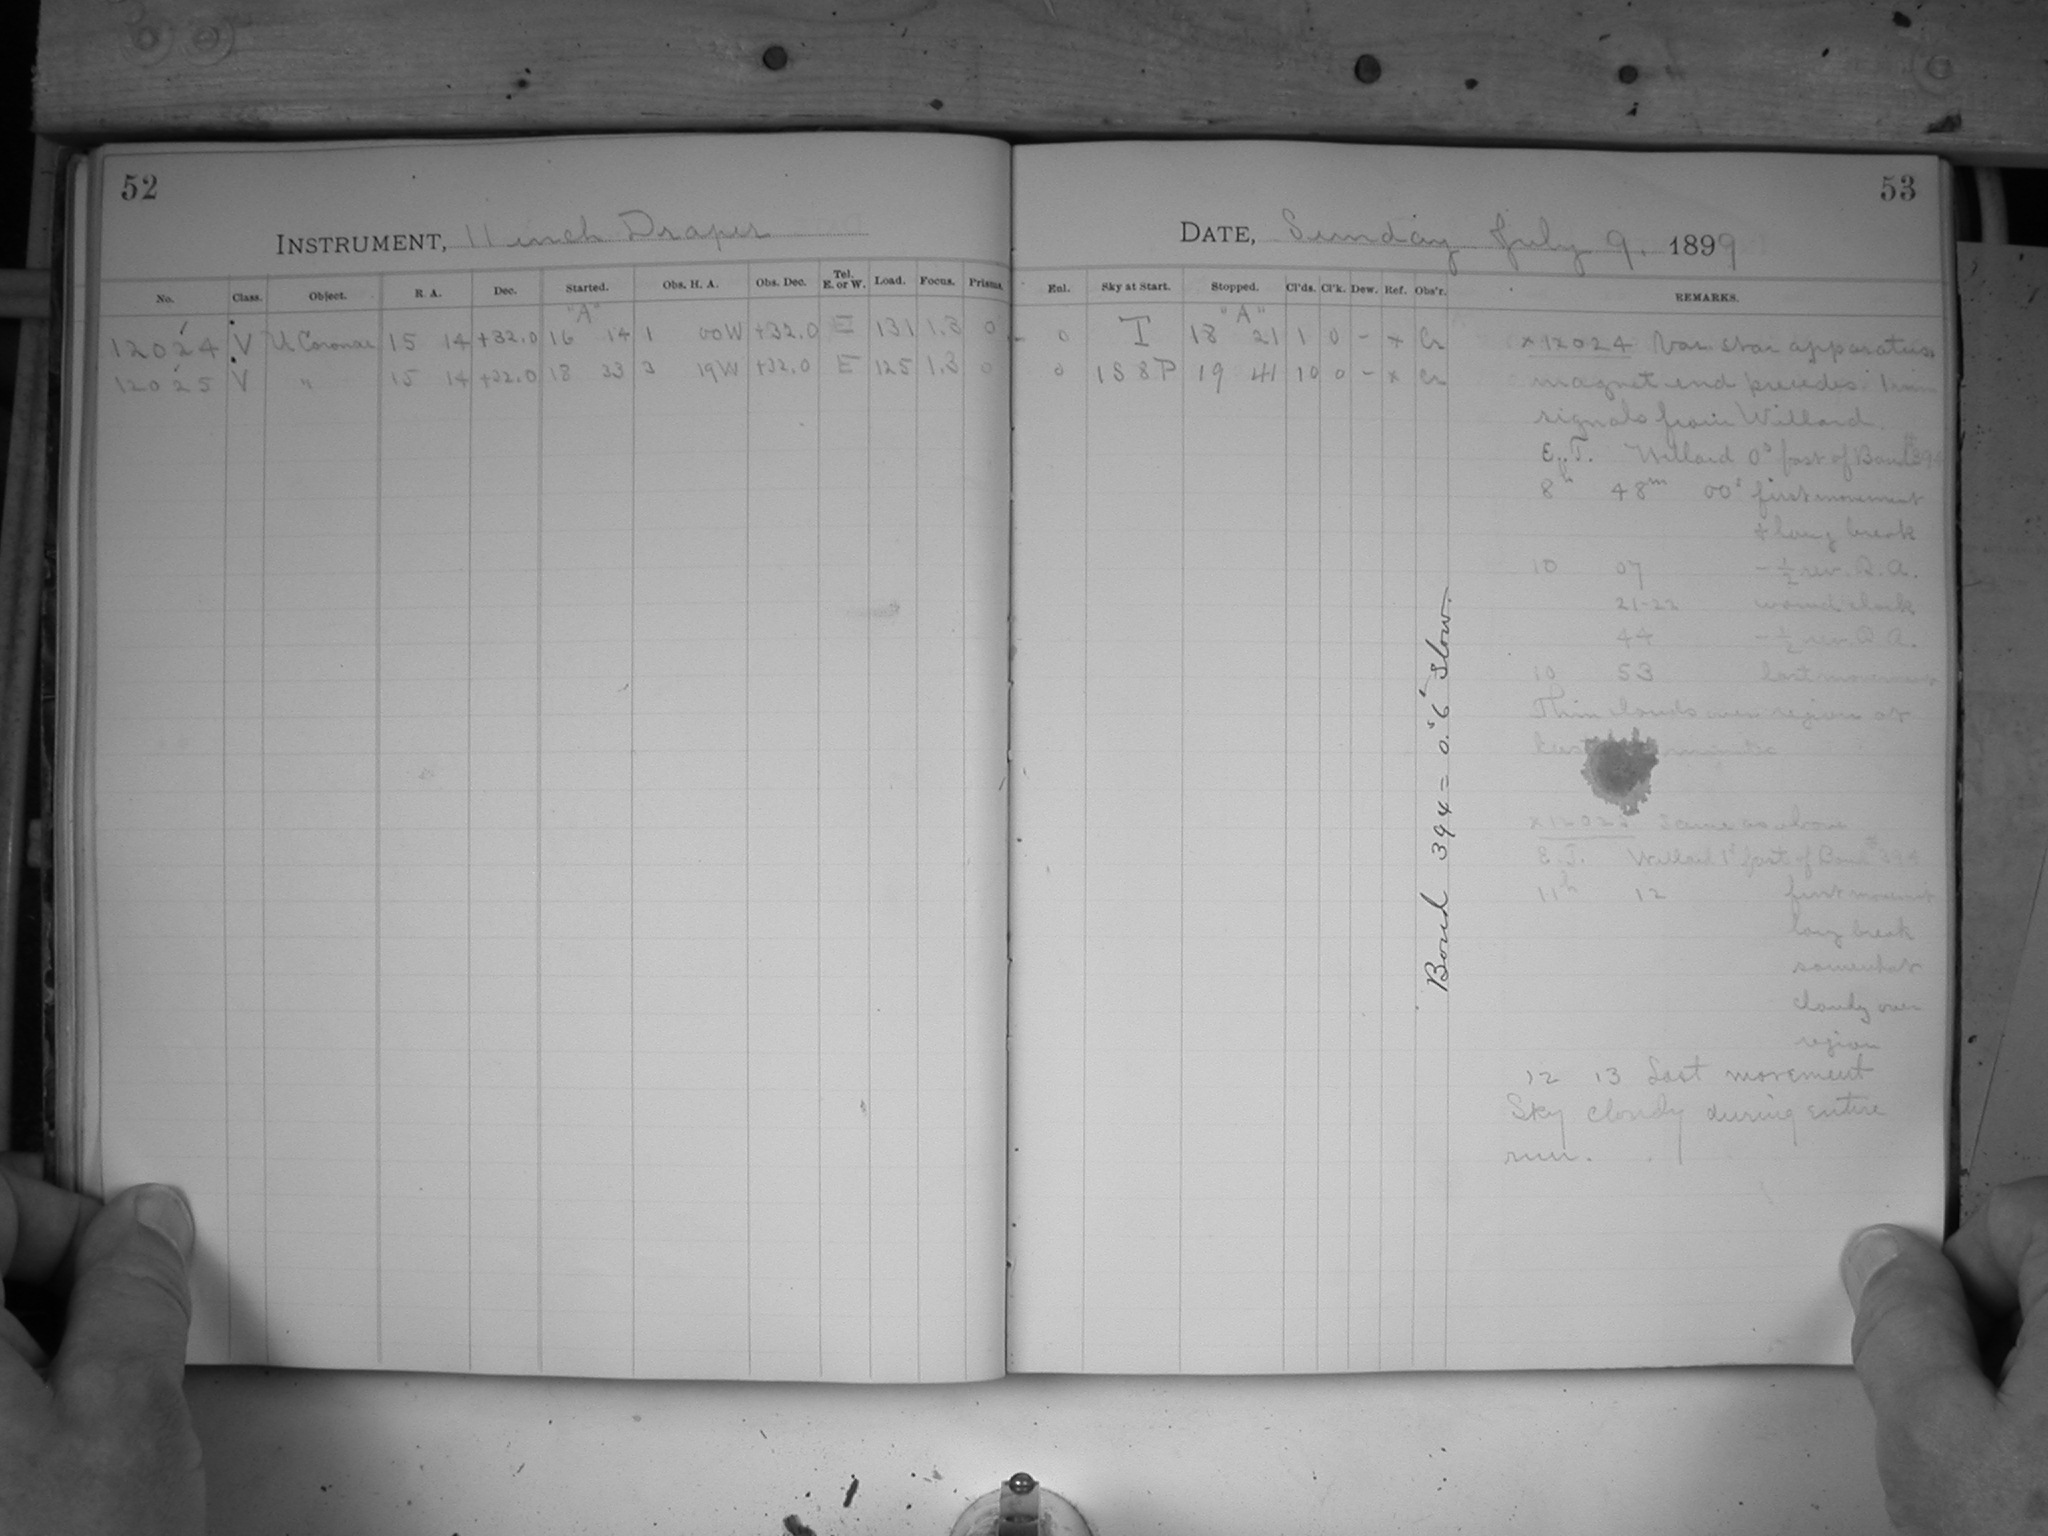 52
INSTRUMENT, 11 inch Draper
No. Class. Object. R. A. Dec. Started. Obs. H. A. Obs. Dec. Tel. E. or W. Load. Focus. Prisms.
"A"
12024 V U Coronae 15 14 +32.0 16 14 1 00W +32.0 E 131 1.3 0
12025 V " 15 14 +32.0 18 33 3 19W +32.0 E 125 1.3 0
53
DATE, Sunday July 9. 1899
Enl. Sky at Start. Stopped. Cl'ds. Cl'k. Dew. Ref. Obs'r. REMARKS.
"A"
0 I 18 21 1 0 - x Cr
0 158P 19 41 10 0 - x Cr
x12024 Var. star apparatus
magnet end precedes. 1 min
signals from Willard.
E. T. Willard 0s fast of Bond 394
8h 48m 00s first movement
+ long break
10 07 -½ rev. R. A.
21-22 wound clock
44 -½ rev. R. A.
10 53 last movement
Thin clouds over region at
last
x12025 Same as above
E. T. Willard 1s fast of Bond 394
11h 12 first movement
long break
somewhat
cloudy over
region
12 13 Last movement
Sky cloudy during entire
run.
Bond 394 = 0.s6 slow.